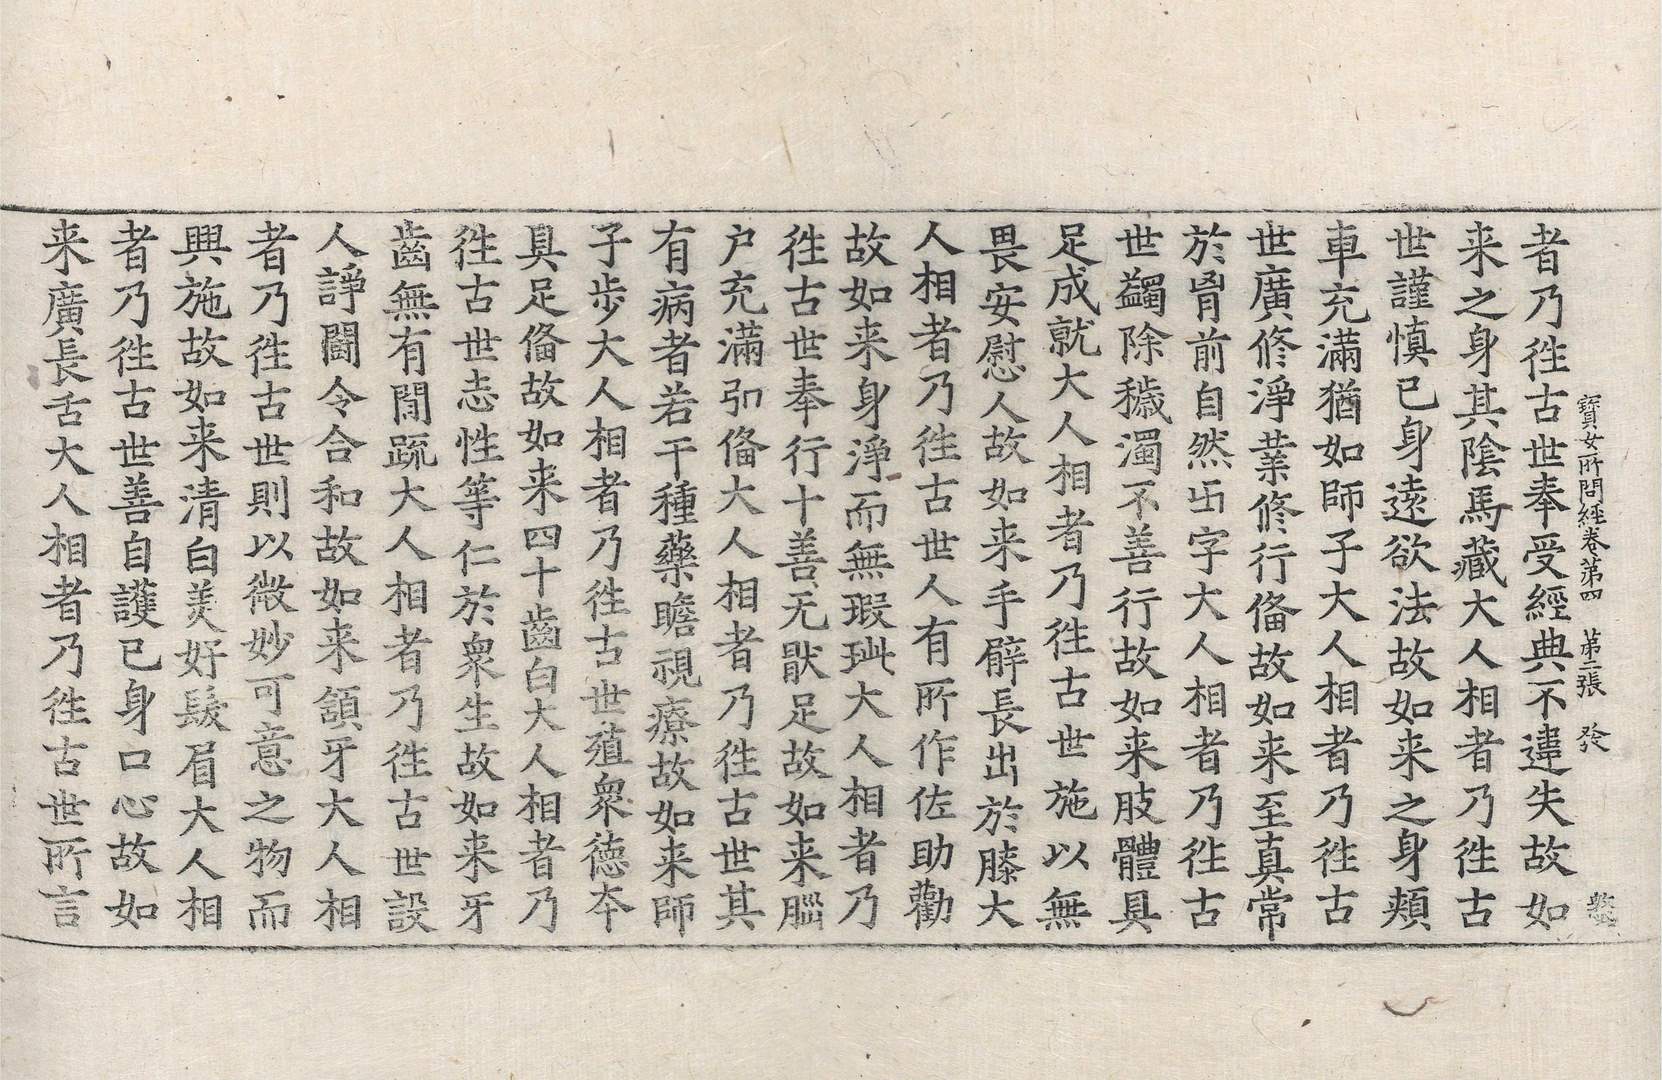 寶女所問經卷第四　第二張　發
者乃徃古世奉受經典不違失故如
来之身其陰馬藏大人相者乃徃古
世謹慎已身遠欲法故如来之身頰
車充滿猶如師子大人相者乃徃古
世廣修淨業修行俻故如来至真常
於胷前自然卐字大人相者乃徃古
世蠲除穢濁不善行故如来肢體具
足成就大人相者乃徃古世施以無
畏安慰人故如来手臂長出於膝大
人相者乃徃古世人有所作佐助勸
故如来身淨而無瑕玼大人相者乃
徃古世奉行十善无猒足故如来腦
户充滿弘俻大人相者乃徃古世其
有病者若干種藥瞻視療故如来師
子步大人相者乃徃古世殖衆德夲
具足俻故如来四十齒白大人相者乃
徃古世志性等仁於衆生故如来牙
齒無有閒踈大人相者乃徃古世設
人諍鬪令合和故如来頷牙大人相
者乃徃古世則以微妙可意之物而
興施故如来清白美好髮眉大人相
者乃徃古世善自護已身口心故如
来廣長舌大人相者乃徃古世所言